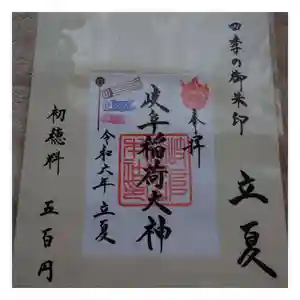 四季の御朱印
立夏
奉拝
岐阜稲荷大神
令和六年 立夏
初穂料 五百円